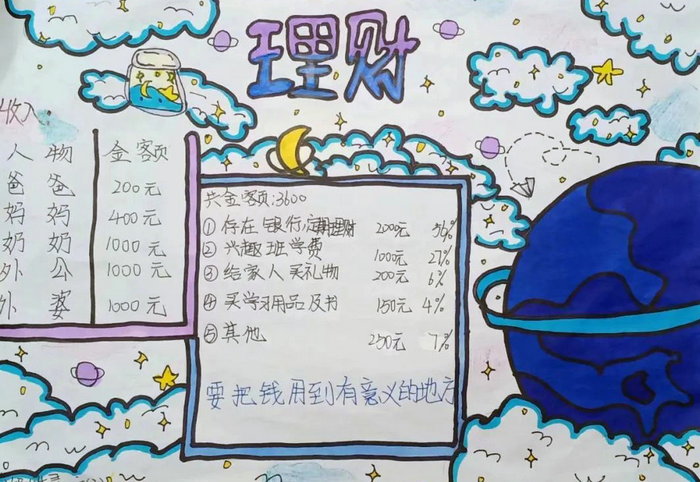 理财
收入:
人物 金额
爸爸 200元
妈妈 400元
奶奶 1000元
外公 1000元
外婆 1000元
共金额:3600
①存在银行定期理财 2000元 56%
②兴趣班学费 1000元 27%
③给家人买礼物 200元 6%
④买学习用品及书 150元 4%
⑤其他 250元 7%
要把钱用到有意义的地方